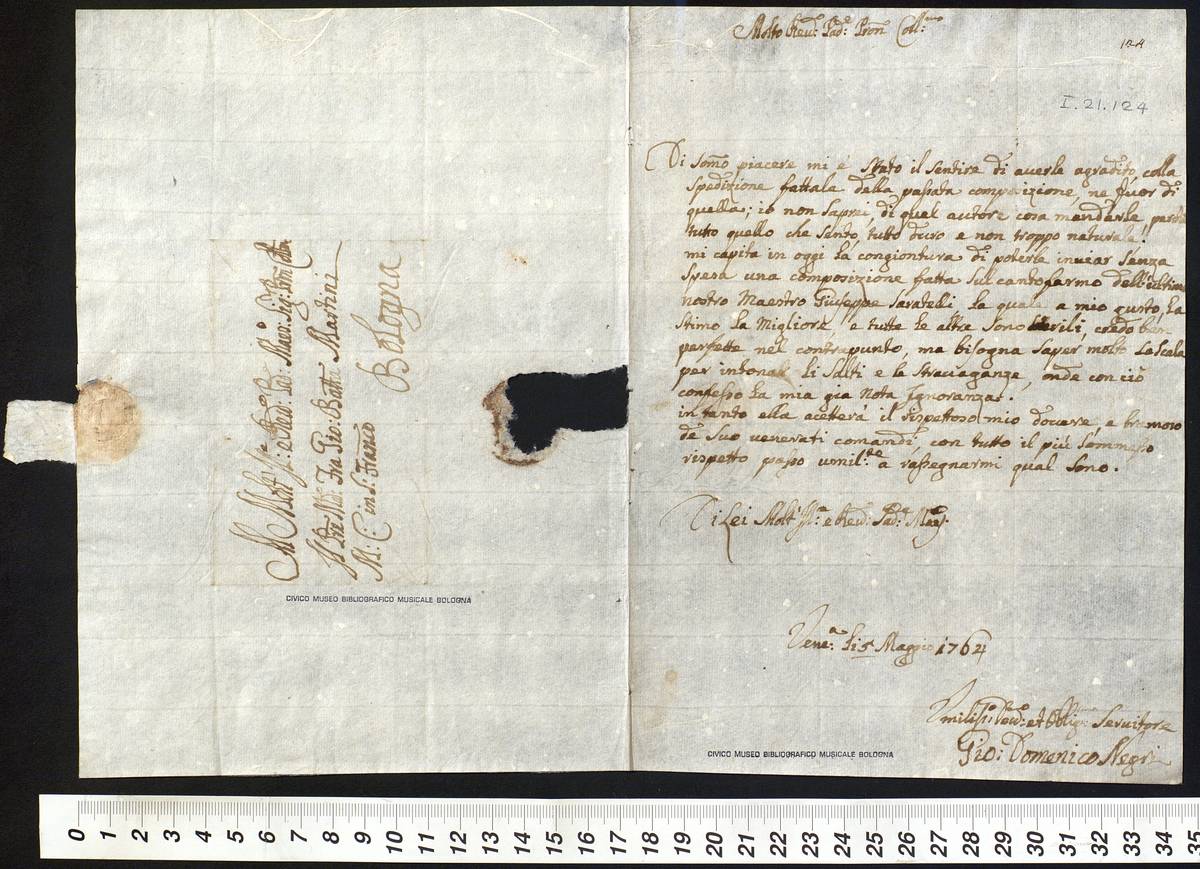 Molto Reu:do Pad:e Pron Coll:mo
124
I.21.124
Di som̄o piacere mi é stato il sentire di auerle agradito colla
spedizione fattale della passata composizione, ne fuor di
quella; io non saprei di qual autore cosa mandarle perché
tutto quello che sento, tutto duro e non troppo naturale!
mi capita in oggi la congiontura di poterle inuiar senza
spesa una composizione fatta sul cantofermo dell'ultimo
nostro Maestro Giuseppe Saratelli la quale a mio gusto, la
stimo la Migliore, e tutte le altre sono sterili, credo ben
perfette nel contrapunto, ma bisogna saper molto la scala
per intonar li salti e le strauaganze, onde con ció
confesso la mia gia nota Ignoranza.
in tanto ella acetterá il rispettoso mio douere, e bramoso
de suo venerati comandi, con tutto il piú sommesso
rispetto passo umil:te a rassegnarmi qual sono.
Di Lei Molt' Ill:e e Reu:do Pad:e Maes:
Vene:a li 5 Maggio 1764
Vmiliss:o Deu:mo et Obblig:mo Seruitore
Gio: Domenico Negri
CIVICO MUSEO BIBLIOGRAFICO MUSICALE BOLOGNA
Al Molt' Ill:e e Reud: Pad: Maes: Sig: Pron Coll:mo
Il Pre Mro: Fra Gio: Batta Martini
M: C: in S: Franco
Bologna
CIVICO MUSEO BIBLIOGRAFICO MUSICALE BOLOGNA
0 1 2 3 4 5 6 7 8 9 10 11 12 13 14 15 16 17 18 19 20 21 22 23 24 25 26 27 28 29 30 31 32 33 34 35